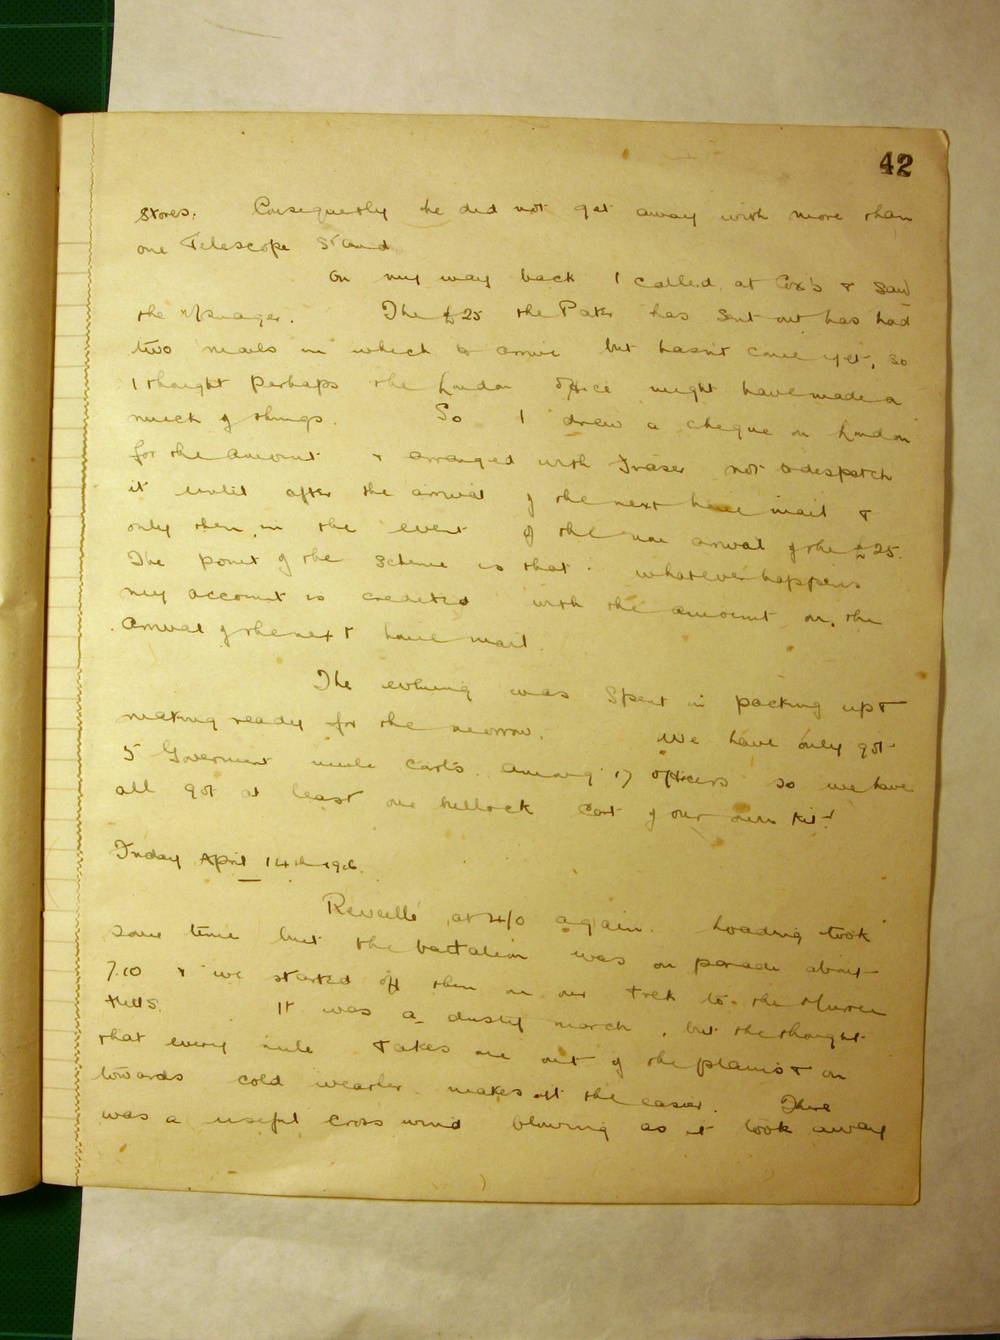 42
stores. Consequently he did not get away with more than
one Telescope Stand
On my way back I called at Cox's & saw
the Manager. The £25 the Pater has sent out has had
two mails in which to arrive but hasn't come yet, so
I thought perhaps the London office might have made a
muck of things. So I drew a cheque on London
for the amount & arranged with Fraser not to despatch
it until after the arrival of the next home mail &
only then in the event of the non arrival of the £25.
The point of the scheme is that whatever happens
my account is credited with the amount on the
arrival of the next home mail.
The evening was spent in packing up &
making ready for the morrow. We have only got
5 Goverment mule carts among 17 officers so we have
all got at least one bullock cart of our own kit!
Friday April 14th 1916.
Reveille at 4/0 again. Loading took
some time but the battalion was on parade about
7.10 & we started off then on our trek to the Murree
Hills. It was a dusty march, but the thought
that every mile takes one out of the plains & on
towards cold weather makes it the easier. There
was a useful cross wind blowing as it took away